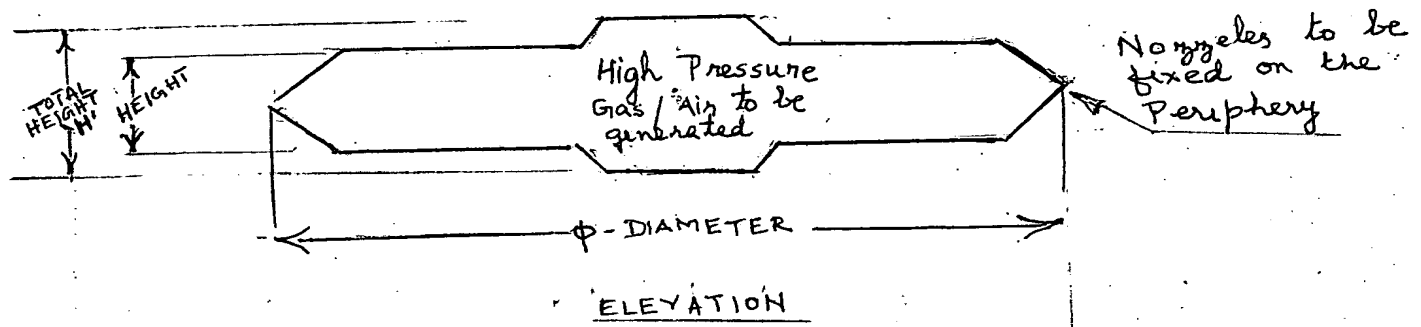 TOTAL
HEIGHT
'H'
HEIGHT
High Pressure
Gas / Air to be
generated
Nozzeles to be
fixed on the
Periphery
φ - DIAMETER
ELEVATION